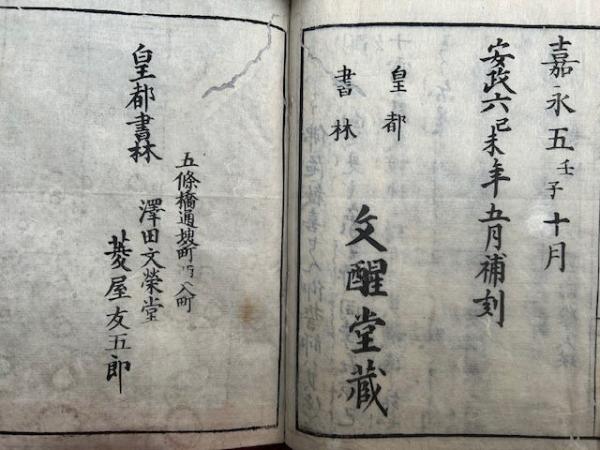 嘉永五壬子十月
安政六己未年五月補刻
皇都
書林
文醒堂藏
皇都書林
五條橋通堺町西入町
澤田文榮堂
菱屋友五郎